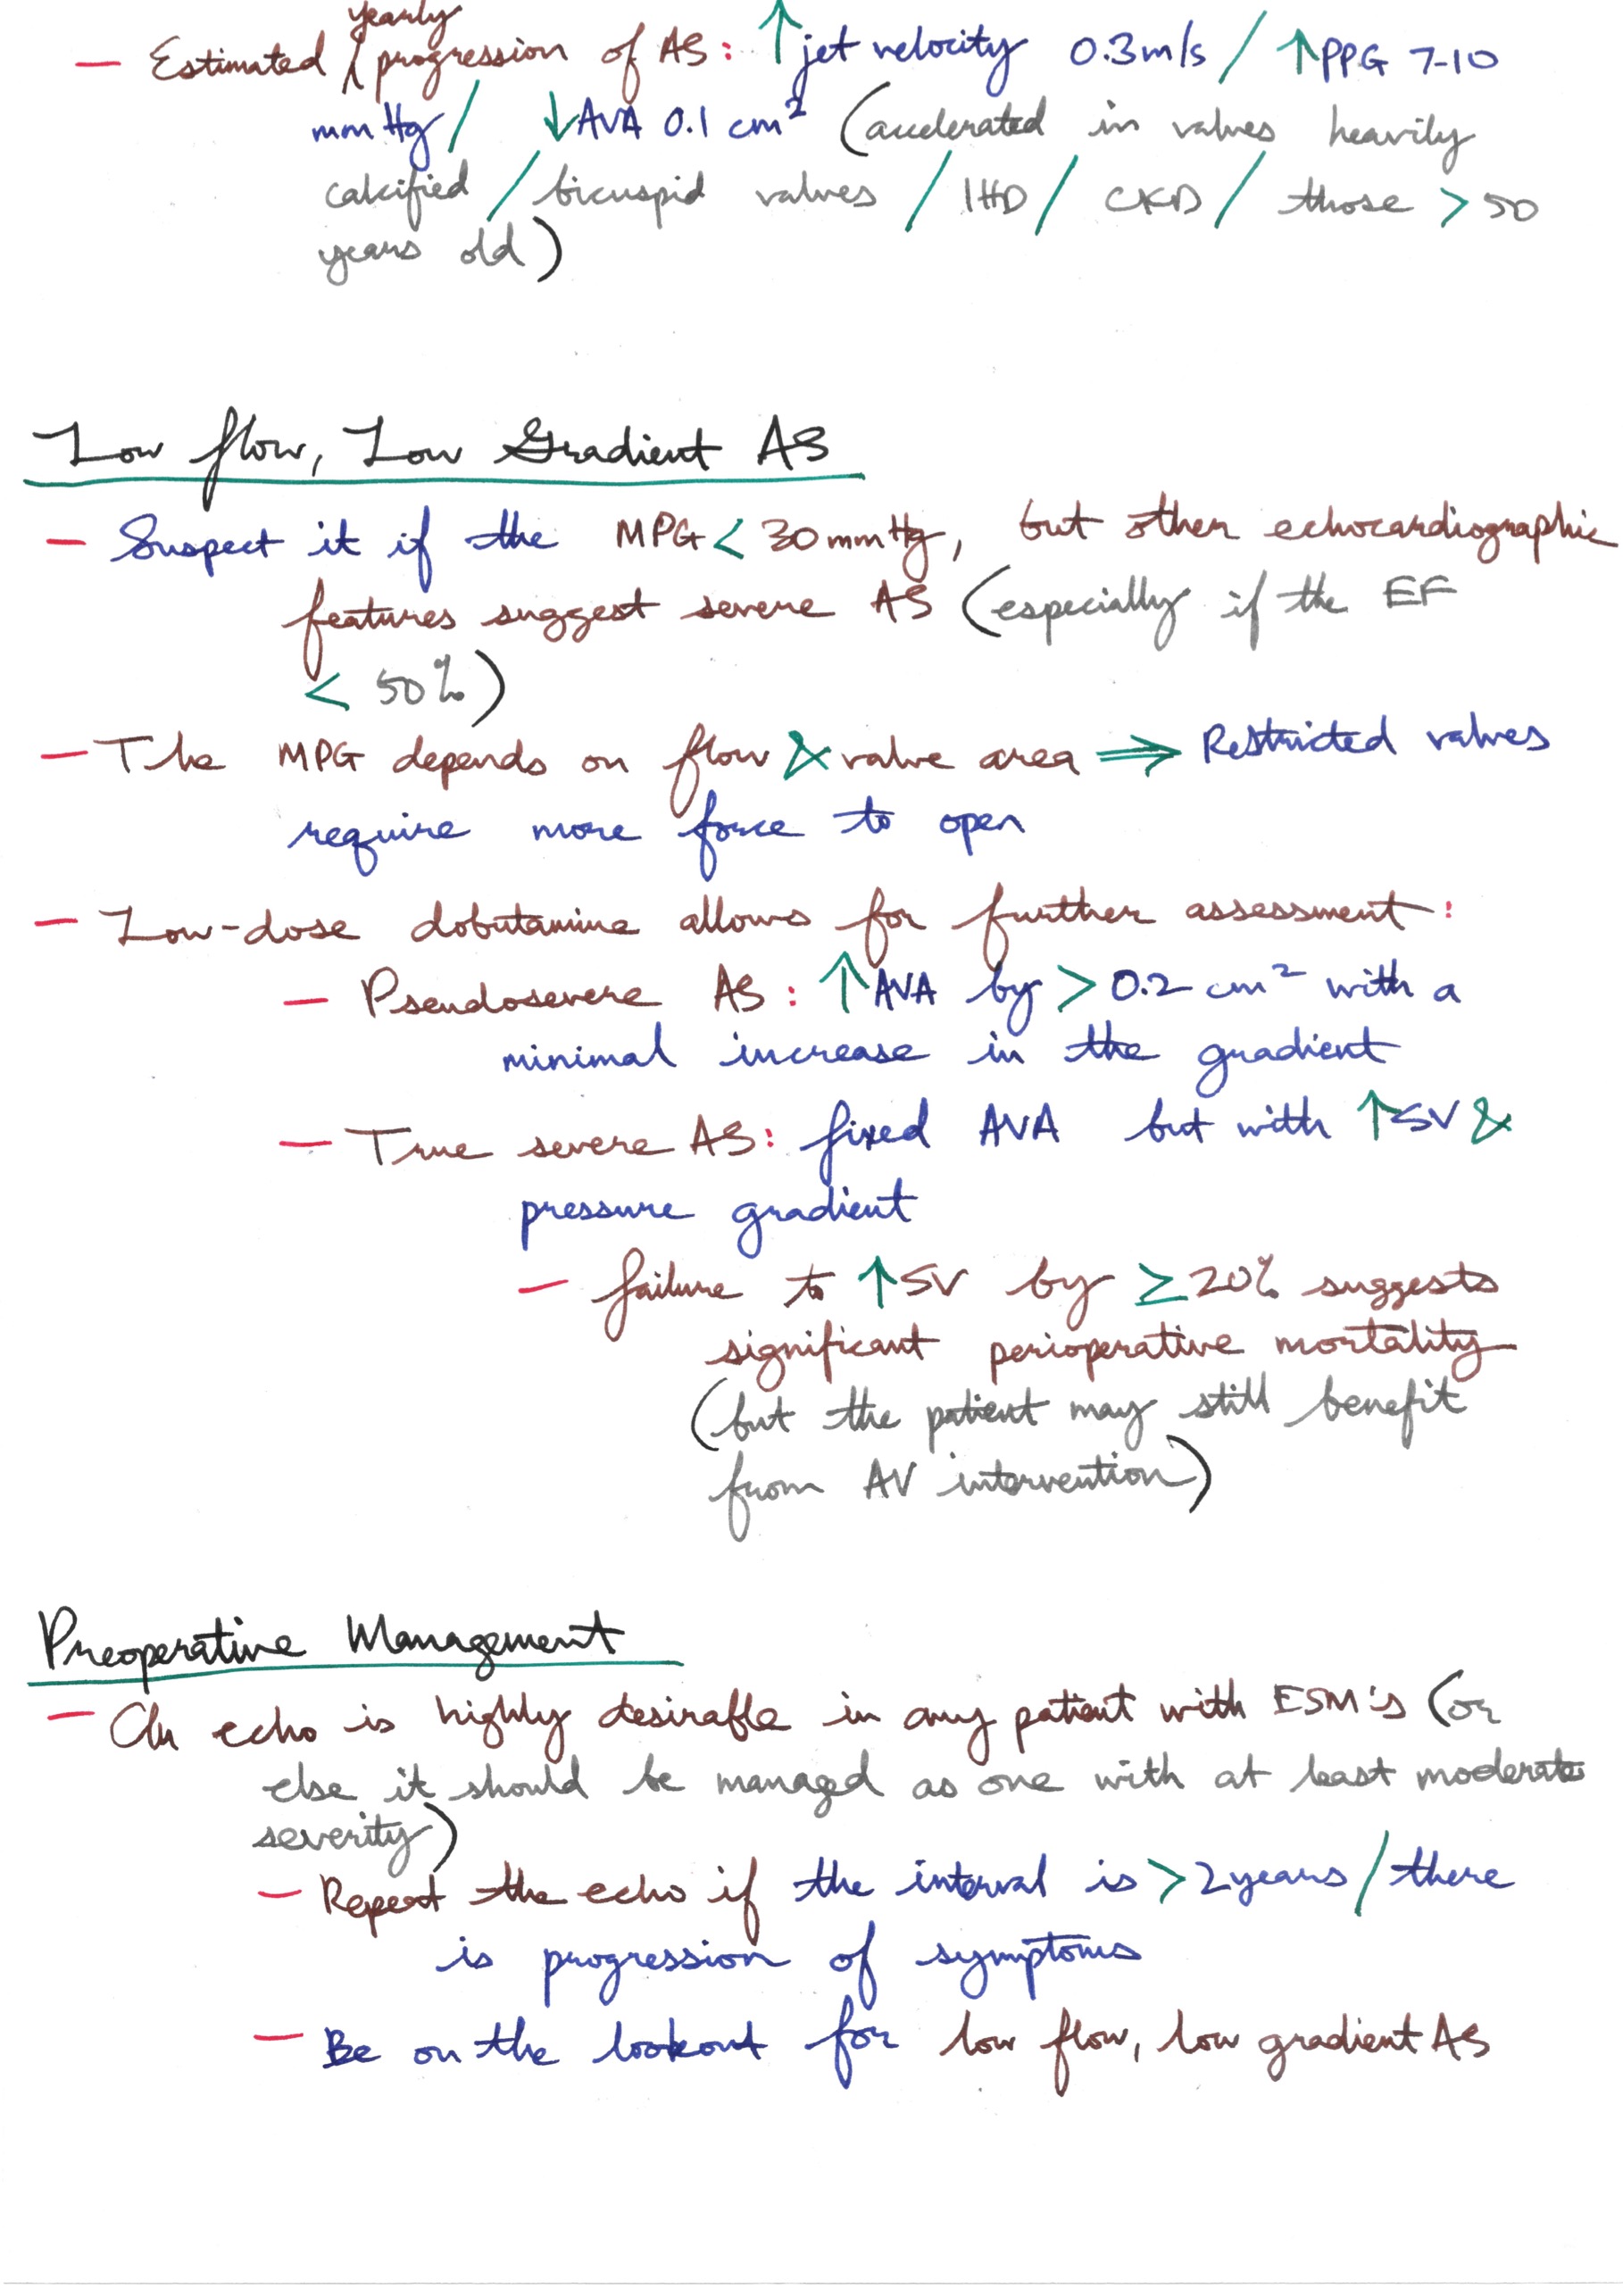 yearly
— Estimated / progression of AS: ↑ jet velocity 0.3 m/s / ↑ PPG 7-10
mmHg / ↓ AVA 0.1 cm² (accelerated in valves heavily
calcified / bicuspid valves / IHD / CKD / those > 50
years old)
Low flow, Low Gradient AS
— Suspect it if the MPG < 30 mmHg, but other echocardiographic
features suggest severe AS (especially if the EF
< 50%)
— The MPG depends on flow & valve area ⇒ Restricted valves
require more force to open
— Low-dose dobutamine allows for further assessment:
— Pseudosevere AS: ↑ AVA by > 0.2 cm² with a
minimal increase in the gradient
— True severe AS: fixed AVA but with ↑ SV &
pressure gradient
— failure to ↑ SV by ≥ 20% suggests
significant perioperative mortality
(but the patient may still benefit
from AV intervention)
Preoperative Management
— An echo is highly desirable in any patient with ESM's (or
else it should be managed as one with at least moderate
severity)
— Repeat the echo if the interval is > 2 years / there
is progression of symptoms
— Be on the lookout for low flow, low gradient AS